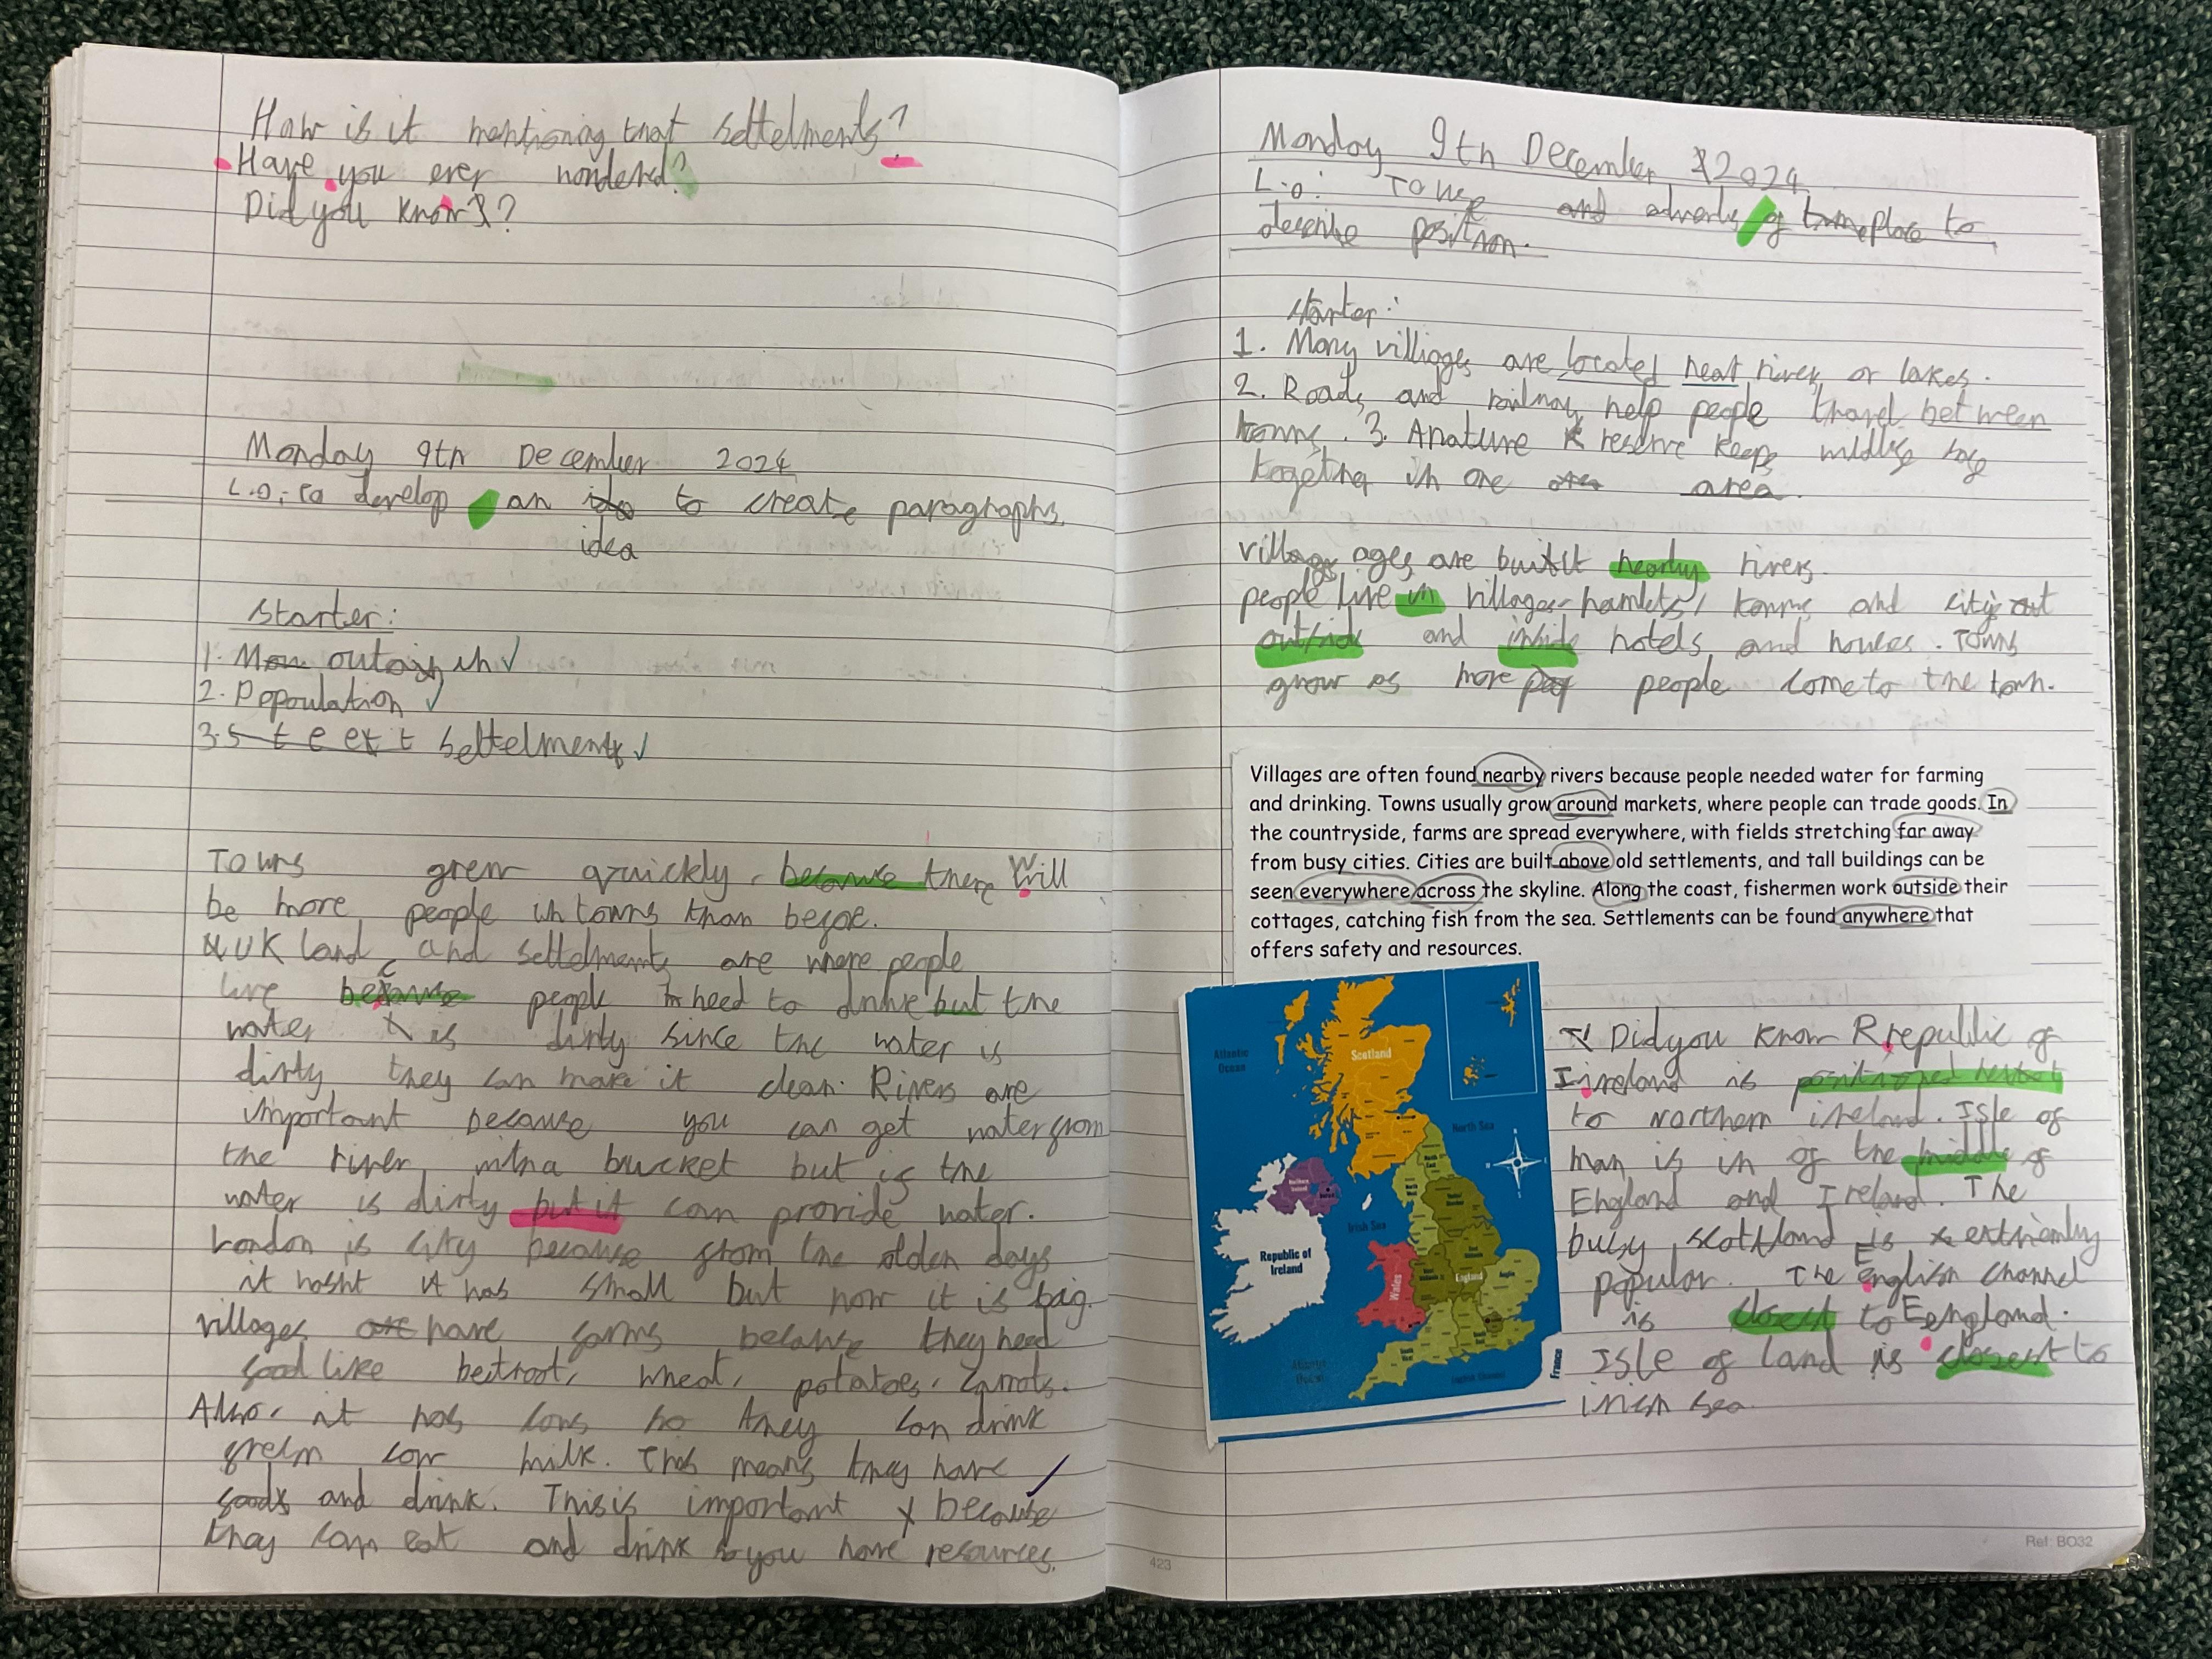 How is it mentioning that settelments?
Have you ever wondered?
Did you know?
Monday 9th December 2024
L.O: to develop an ido to create paragraphs.
idea
Starter:
1. outs in
2. Popoulation
3. s t e et t settelments
Towns grew quickly, because there Will
be more people in towns than before.
UK land and settelments are where people
live because people need to drink but the
water is dirty since the water is
dirty they can make it clean. Rivers are
important because you can get water from
the river with a bucket but is the
water is dirty but it can provide water.
London is city because from the olden days
it wasnt it was small but now it is big.
villages are have farms because they need
food like beitroot, wheat, potatoes, carrots.
Also, it has cows so they can drink
cow milk. This means they have
foods and drink. This is important because
they can eat and drink so you have resources.
Monday 9th December 2024
L.O: To use and adverbs of time place to
describe position.
Starter:
1. Many villiages are located near rivers or lakes.
2. Roads and railways help people travel between
towns. 3. A nature reserve keeps wildlife
together in one area.
village ages are built nearby rivers.
people live in villages, hamlets, towns and citys out
outside and inside hotels and houses. Towns
grow as more peop people come to the town.
Villages are often found nearby rivers because people needed water for farming
and drinking. Towns usually grow around markets, where people can trade goods. In
the countryside, farms are spread everywhere, with fields stretching far away
from busy cities. Cities are built above old settlements, and tall buildings can be
seen everywhere across the skyline. Along the coast, fishermen work outside their
cottages, catching fish from the sea. Settlements can be found anywhere that
offers safety and resources.
Did you know Rrepublic of
Iireland is positioned
to northern ireland. Isle of
man is in of the middle of
England and Ireland. The
busy scottland is extriemly
popular. The English channel
is closest to Eengland.
Isle of land is closest to
irish sea.
Atlantic
Ocean
Scotland
North Sea
Northern
Ireland
Irish Sea
Republic of
Ireland
Wales
England
Anglia
France
N
423
Ref: BO32